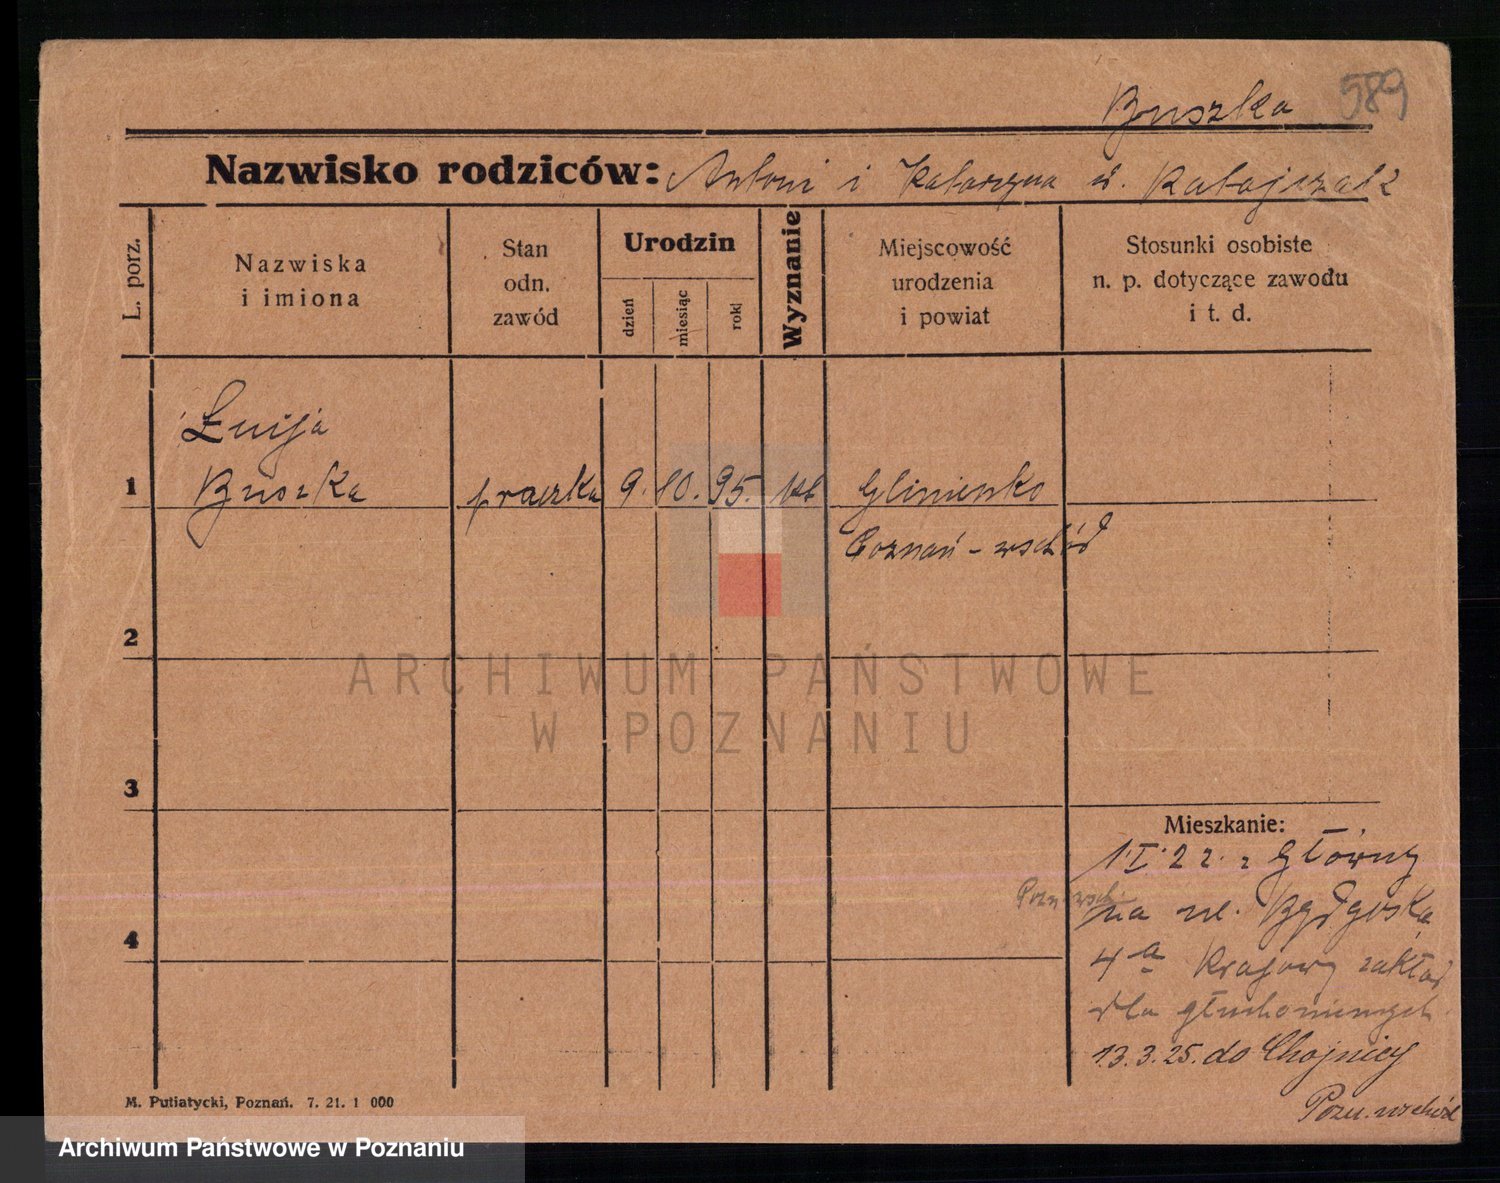 589
Buszka
Nazwisko rodziców: Antoni i Katarzyna u. Ratajczak
L. porz.
Nazwiska i imiona
Stan odn. zawód
Urodzin
dzień
miesiąc
rok
Wyznanie
Miejscowość urodzenia i powiat
Stosunki osobiste n. p. dotyczące zawodu i t. d.
Łucja
1 Buszka praczka 9. 10. 95. kt Glinienko
Poznań - wschód
2
3
4
Mieszkanie:
1.I.22. z Główny
Pozn. wsch.
na ul. Bydgoską
4a Krajowy zakład
dla głuchoniemych
13.3.25. do Chojnicy
Pozn. wschód
M. Putiatycki, Poznań. 7. 21. 1 000
ARCHIWUM PAŃSTWOWE
W POZNANIU
Archiwum Państwowe w Poznaniu